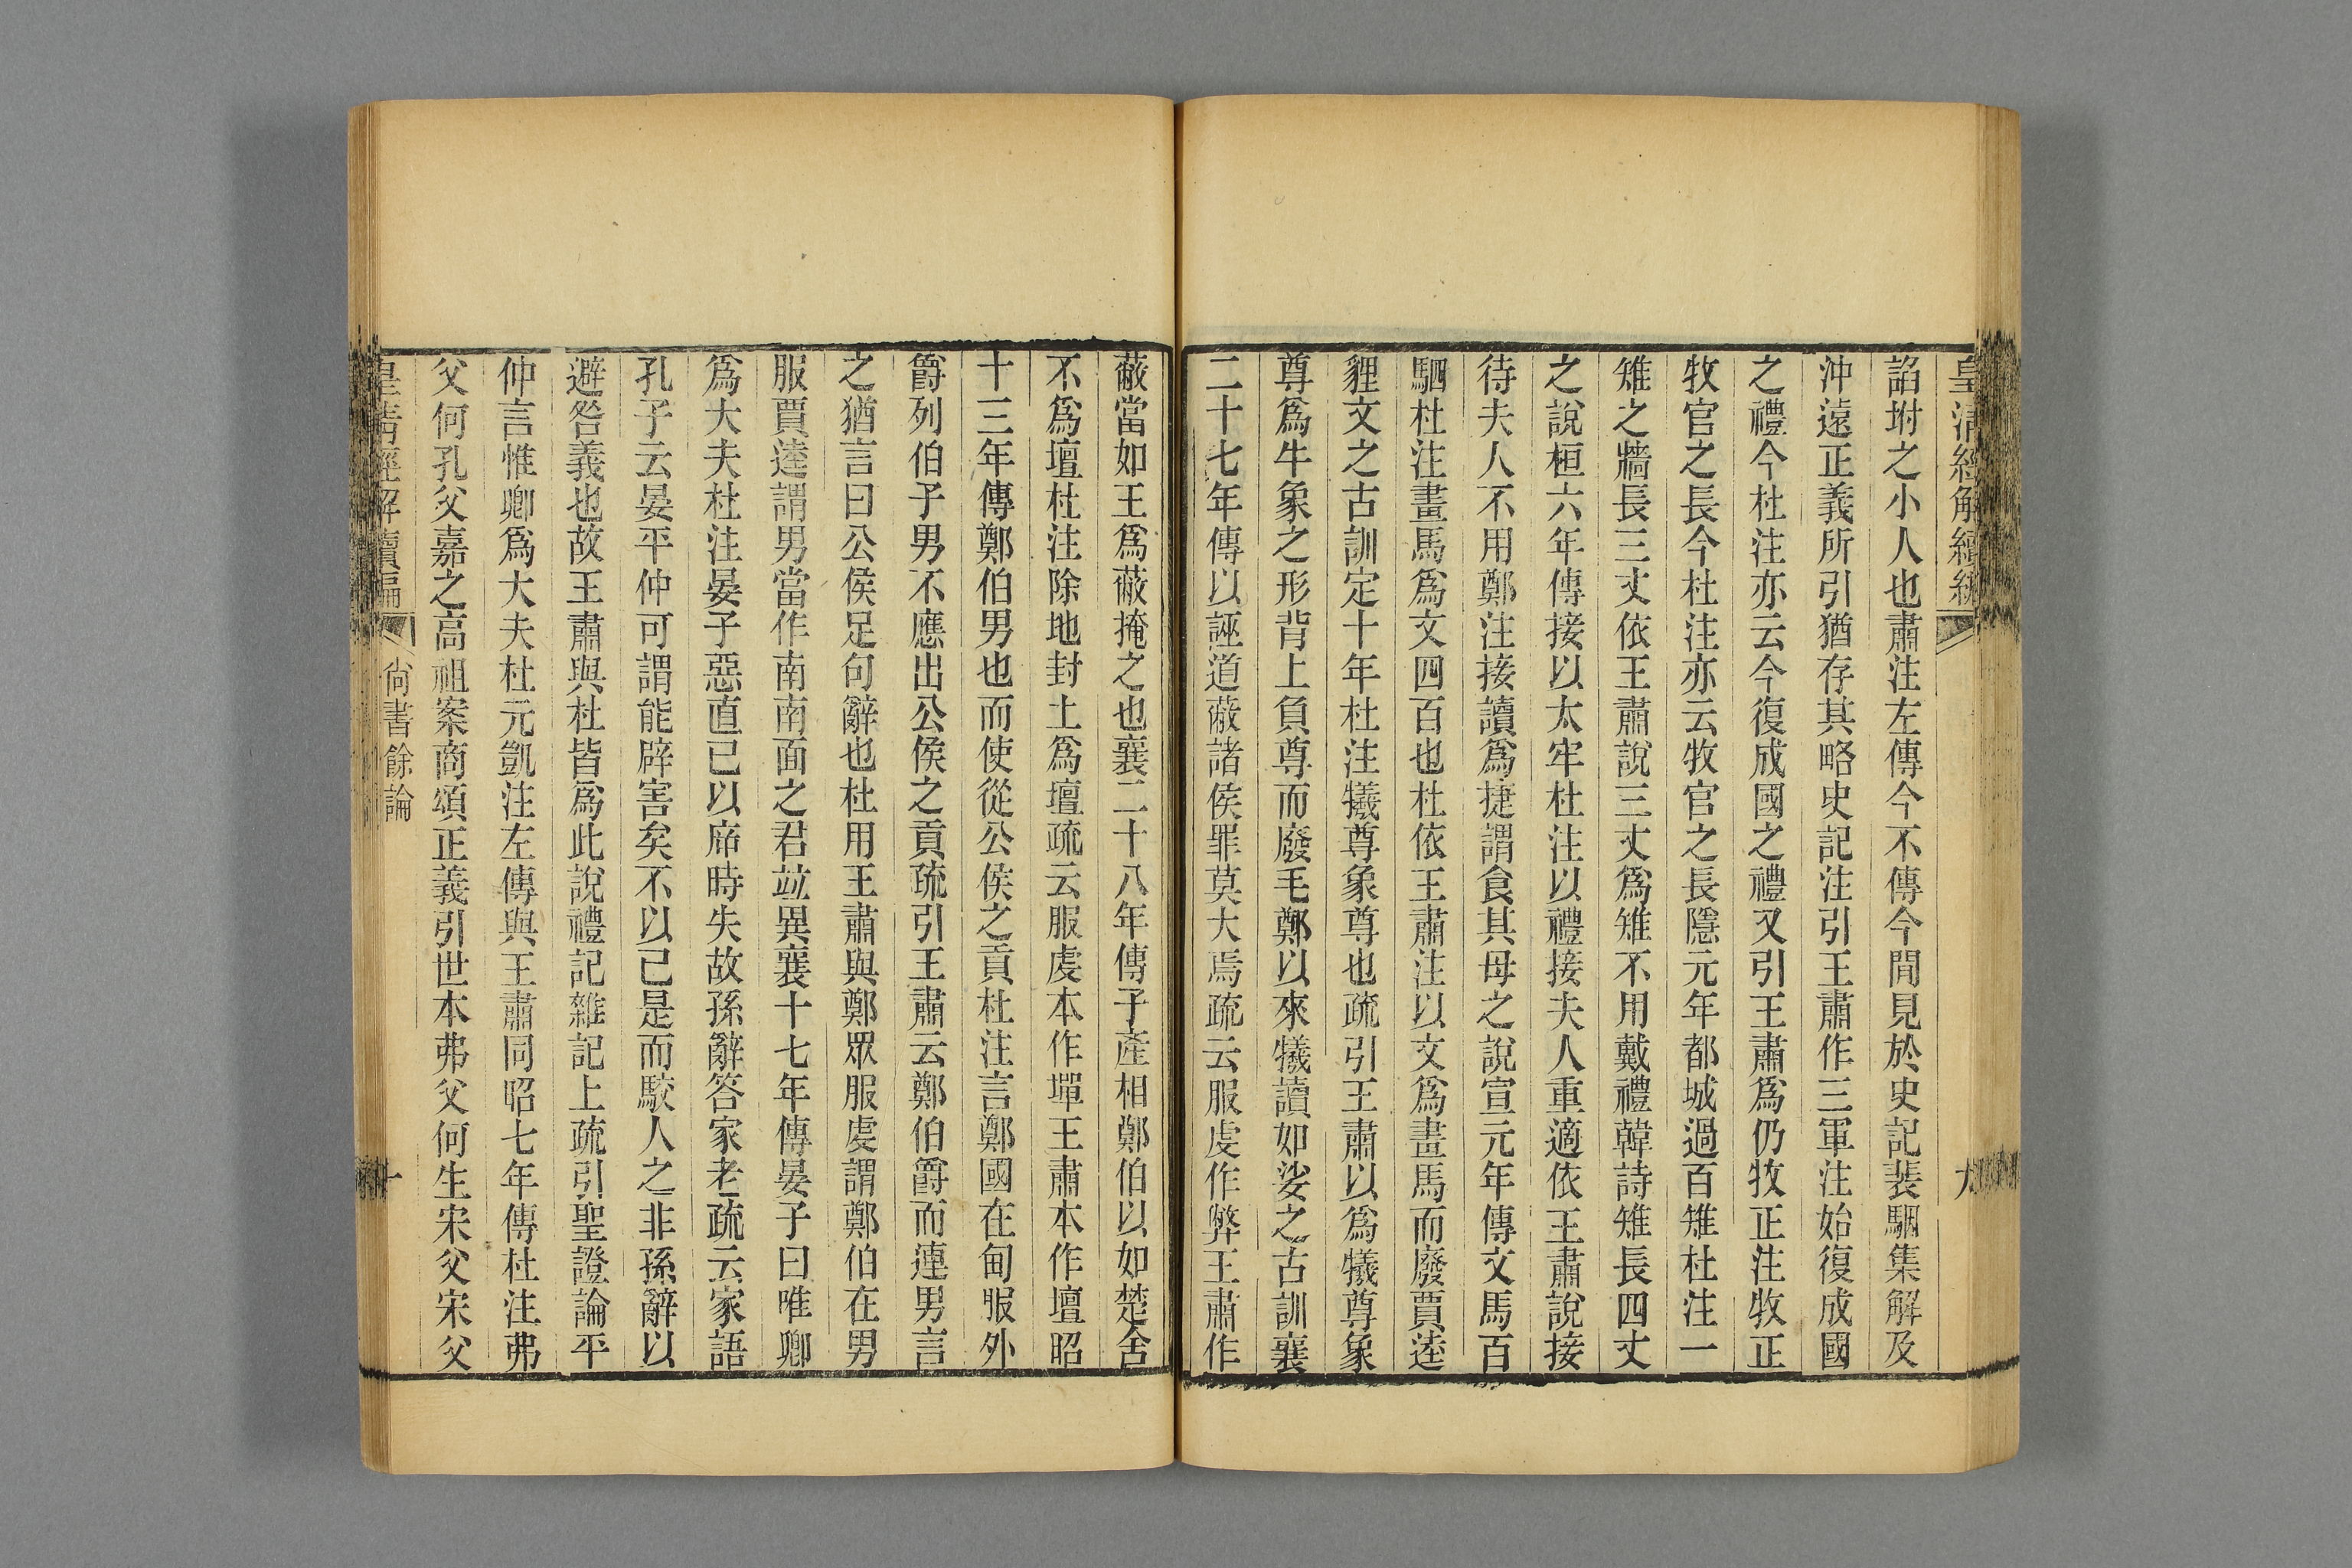 皇清經解續編
九
諂坿之小人也肅注左傳今不傳今閒見於史記裴駰集解及
沖遠正義所引猶存其略史記注引王肅作三軍注始復成國
之禮今杜注亦云今復成國之禮又引王肅爲仍牧正注牧正
牧官之長今杜注亦云牧官之長隱元年都城過百雉杜注一
雉之牆長三丈依王肅說三丈爲雉不用戴禮韓詩雉長四丈
之說桓六年傳接以太牢杜注以禮接夫人重適依王肅說接
待夫人不用鄭注接讀爲捷謂食其母之說宣元年傳文馬百
駟杜注畫馬爲文四百也杜依王肅注以文爲畫馬而廢賈逵
貍文之古訓定十年杜注犧尊象尊也疏引王肅以爲犧尊象
尊爲牛象之形背上負尊而廢毛鄭以來犧讀如娑之古訓襄
二十七年傳以誣道蔽諸侯罪莫大焉疏云服虔作弊王肅作
蔽當如王爲蔽掩之也襄二十八年傳子產相鄭伯以如楚舍
不爲壇杜注除地封土爲壇疏云服虔本作墠王肅本作壇昭
十三年傳鄭伯男也而使從公侯之貢杜注言鄭國在甸服外
爵列伯子男不應出公侯之貢疏引王肅云鄭伯爵而連男言
之猶言曰公侯足句辭也杜用王肅與鄭眾服虔謂鄭伯在男
服賈逵謂男當作南南面之君竝異襄十七年傳晏子曰唯卿
爲大夫杜注晏子惡直已以席時失故孫辭答家老疏云家語
孔子云晏平仲可謂能辟害矣不以己是而駮人之非孫辭以
避咎義也故王肅與杜皆爲此說禮記雜記上疏引聖證論平
仲言惟卿爲大夫杜元凱注左傳與王肅同昭七年傳杜注弗
父何孔父嘉之高祖案商頌正義引世本弗父何生宋父宋父
皇清經解續編
尚書餘論
十